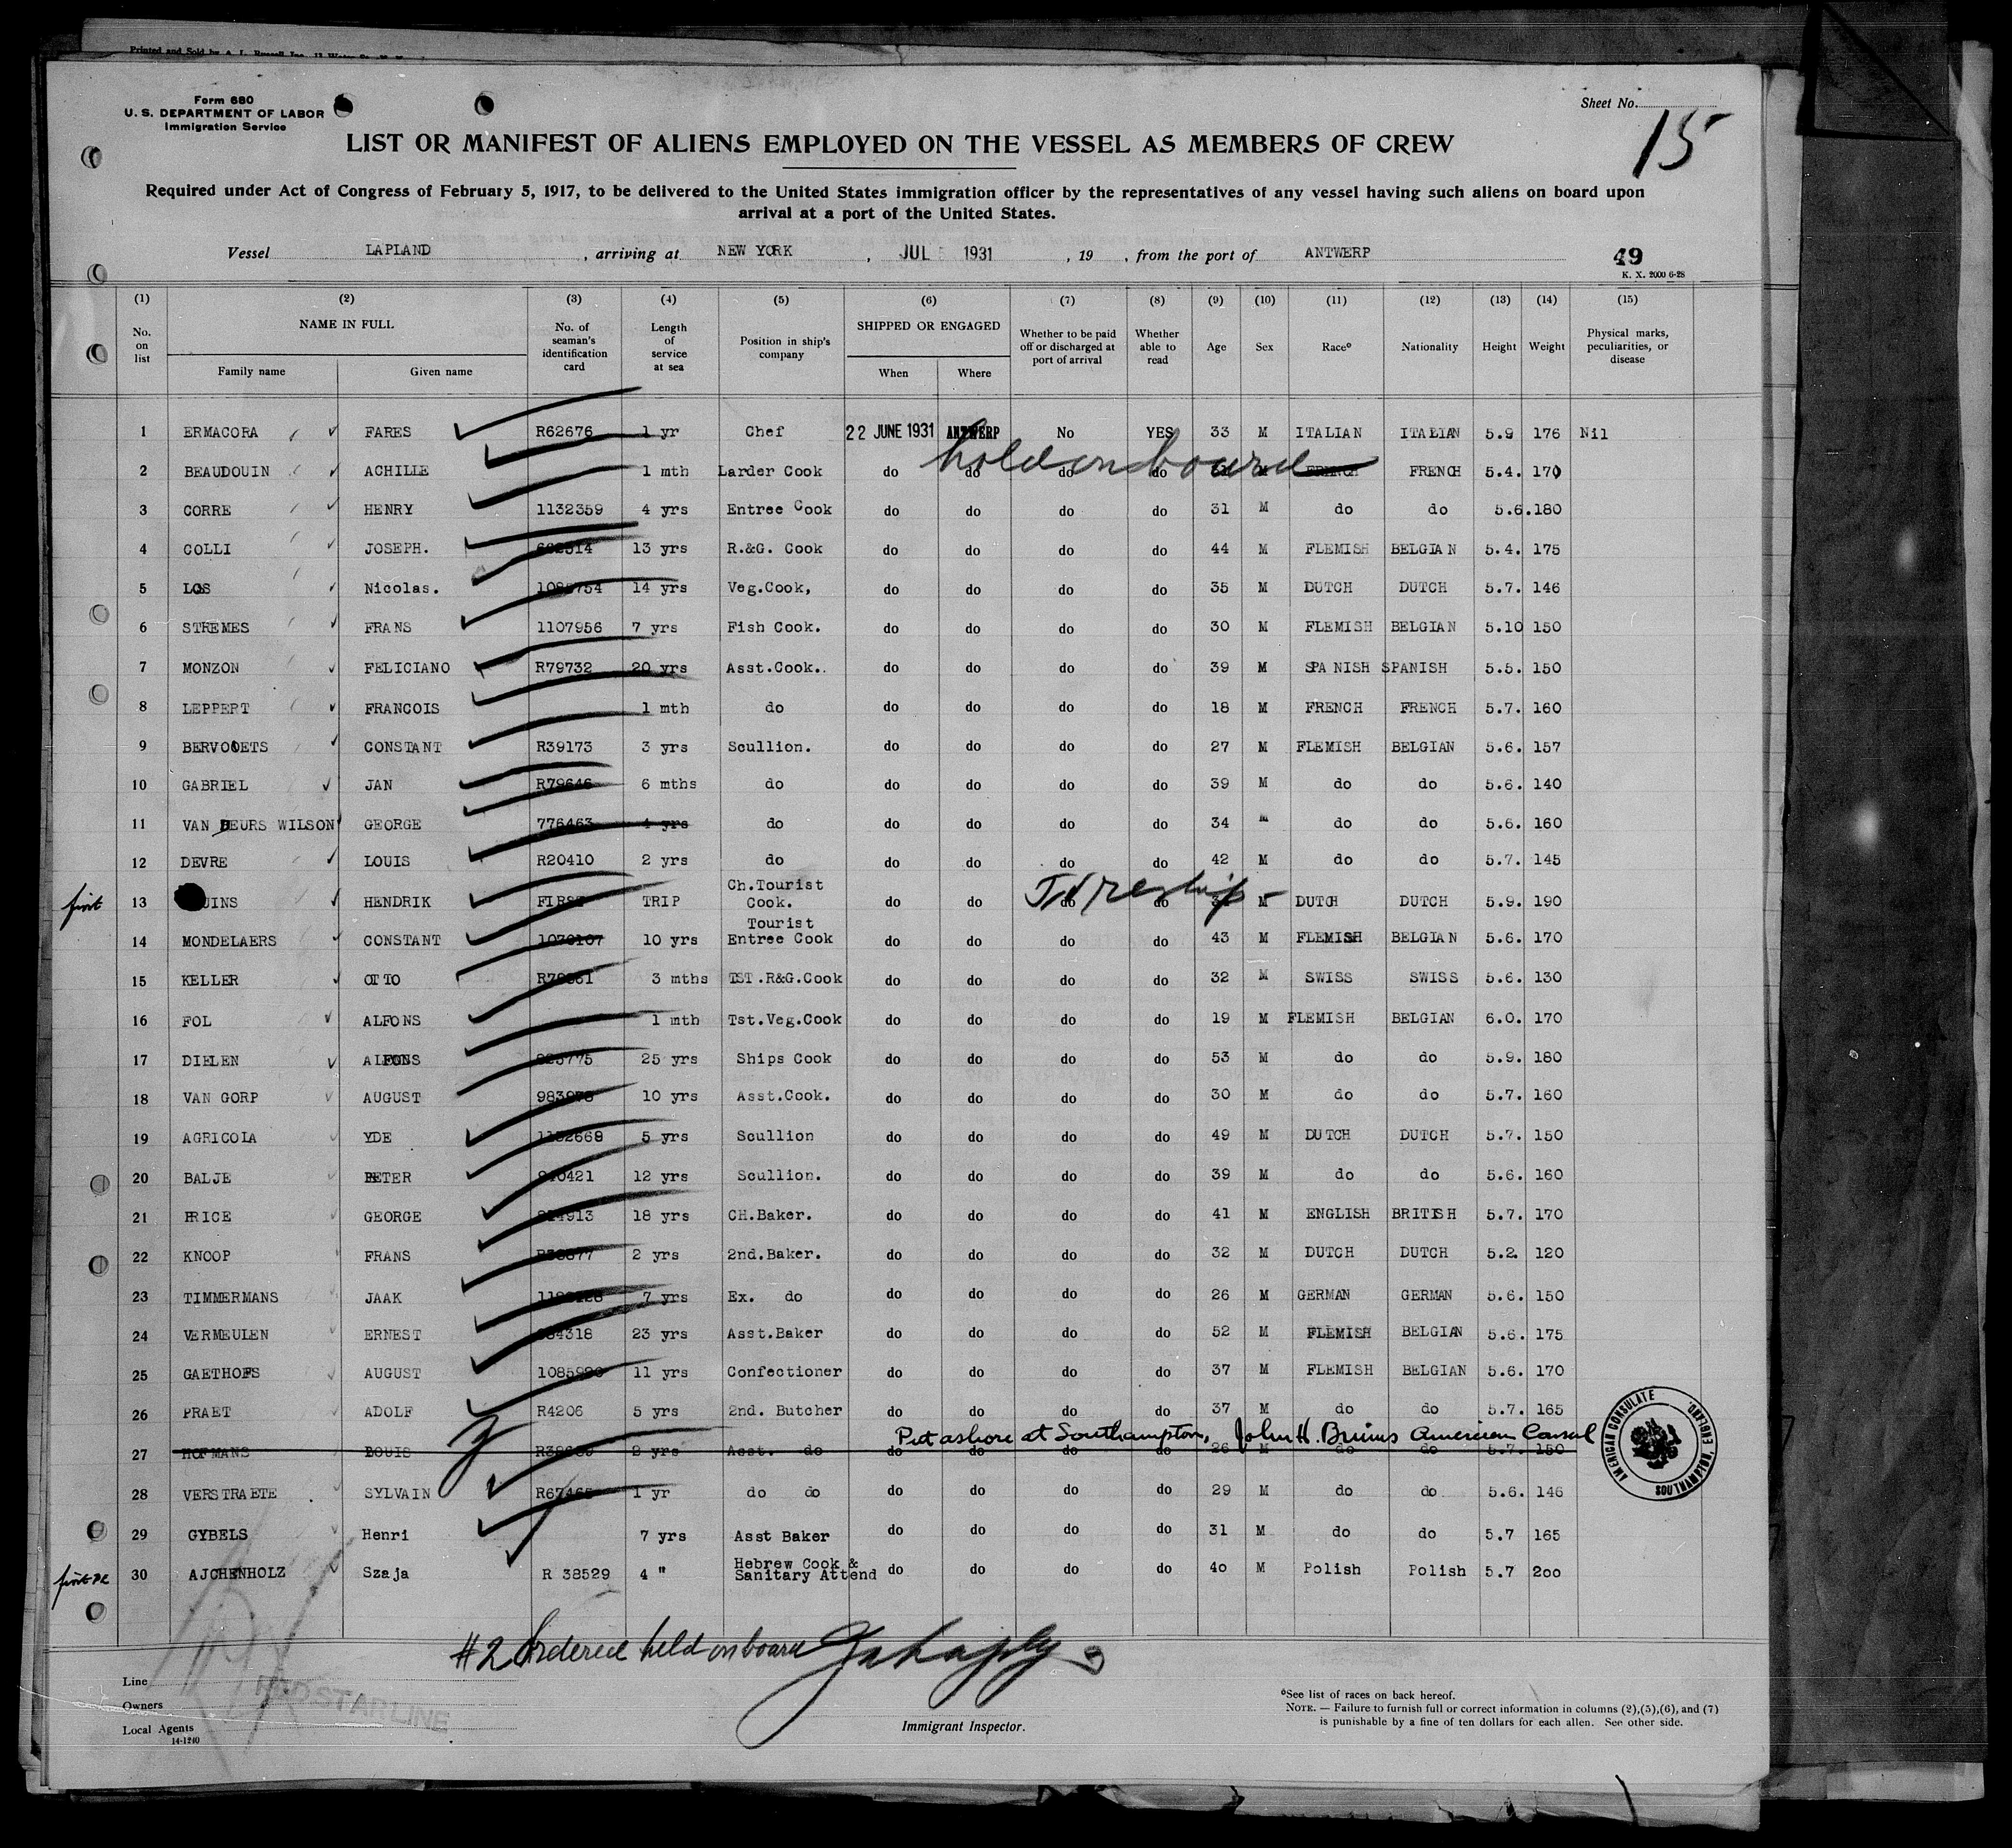 Printed and Sold by A. L. Russell Inc.
Form 680
U. S. DEPARTMENT OF LABOR
Immigration Service
Sheet No.
15
LIST OR MANIFEST OF ALIENS EMPLOYED ON THE VESSEL AS MEMBERS OF CREW
Required under Act of Congress of February 5, 1917, to be delivered to the United States immigration officer by the representatives of any vessel having such aliens on board upon
arrival at a port of the United States.
Vessel LAPLAND , arriving at NEW YORK , JUL 1931 , 19 , from the port of ANTWERP
49
K. X. 2000 6-28
(1) (2) (3) (4) (5) (6) (7) (8) (9) (10) (11) (12) (13) (14) (15)
No. on list NAME IN FULL Family name Given name No. of seaman's identification card Length of service at sea Position in ship's company SHIPPED OR ENGAGED When Where Whether to be paid off or discharged at port of arrival Whether able to read Age Sex Race° Nationality Height Weight Physical marks, peculiarities, or disease
1 ERMACORA FARES R62676 1 yr Chef 22 JUNE 1931 ANTWERP No YES 33 M ITALIAN ITALIAN 5.9 176 Nil
held on board
2 BEAUDOUIN ACHILLE 1 mth Larder Cook do do do do M FRENCH FRENCH 5.4. 170
3 CORRE HENRY 1132359 4 yrs Entree Cook do do do do 31 M do do 5.6. 180
4 COLLI JOSEPH. 13 yrs R.&G. Cook do do do do 44 M FLEMISH BELGIAN 5.4. 175
5 LOS Nicolas. 14 yrs Veg.Cook, do do do do 35 M DUTCH DUTCH 5.7. 146
6 STREMES FRANS 1107956 7 yrs Fish Cook. do do do do 30 M FLEMISH BELGIAN 5.10 150
7 MONZON FELICIANO R79732 20 yrs Asst.Cook.. do do do do 39 M SPANISH SPANISH 5.5. 150
8 LEPPERT FRANCOIS 1 mth do do do do do 18 M FRENCH FRENCH 5.7. 160
9 BERVOETS CONSTANT R39173 3 yrs Scullion. do do do do 27 M FLEMISH BELGIAN 5.6. 157
10 GABRIEL JAN R79646 6 mths do do do do do 39 M do do 5.6. 140
11 VAN DEURS WILSON GEORGE 776463 4 yrs do do do do do 34 M do do 5.6. 160
12 DEVRE LOUIS R20410 2 yrs do do do do do 42 M do do 5.7. 145
first 13 UINS HENDRIK FIRST TRIP Ch.Tourist Cook. do do do do M DUTCH DUTCH 5.9. 190
14 MONDELAERS CONSTANT 1070107 10 yrs Tourist Entree Cook do do do do 43 M FLEMISH BELGIAN 5.6. 170
15 KELLER OTTO 3 mths TST.R&G.Cook do do do do 32 M SWISS SWISS 5.6. 130
16 FOL ALFONS 1 mth Tst.Veg.Cook do do do do 19 M FLEMISH BELGIAN 6.0. 170
17 DIELEN ALFONS 25 yrs Ships Cook do do do do 53 M do do 5.9. 180
18 VAN GORP AUGUST 10 yrs Asst.Cook. do do do do 30 M do do 5.7. 160
19 AGRICOLA YDE 5 yrs Scullion do do do do 49 M DUTCH DUTCH 5.7. 150
20 BALJE PETER 12 yrs Scullion. do do do do 39 M do do 5.6. 160
21 PRICE GEORGE 18 yrs CH.Baker. do do do do 41 M ENGLISH BRITISH 5.7. 170
22 KNOOP FRANS 2 yrs 2nd.Baker. do do do do 32 M DUTCH DUTCH 5.2. 120
23 TIMMERMANS JAAK 7 yrs Ex. do do do do do 26 M GERMAN GERMAN 5.6. 150
24 VERMEULEN ERNEST 23 yrs Asst.Baker do do do do 52 M FLEMISH BELGIAN 5.6. 175
25 GAETHOFS AUGUST 11 yrs Confectioner do do do do 37 M FLEMISH BELGIAN 5.6. 170
26 PRAET ADOLF R4206 5 yrs 2nd. Butcher do do do do 37 M do do 5.7. 165
Put ashore at Southampton, John H. Bruins American Consul
27 HOFMANS LOUIS 2 yrs Asst. do do do do do 26 M do do 5.7. 150
AMERICAN CONSULATE SOUTHAMPTON, ENGLAND.
28 VERSTRAETE SYLVAIN R67465 1 yr do do do do do do 29 M do do 5.6. 146
29 GYBELS Henri 7 yrs Asst Baker do do do do 31 M do do 5.7 165
30 AJCHENHOLZ Szaja R 38529 4 " Hebrew Cook & Sanitary Attend do do do do 40 M Polish Polish 5.7 200
#2 Ordered held on board
Line
Owners
RED STAR LINE
Local Agents
14-1240
Immigrant Inspector.
°See list of races on back hereof.
NOTE. — Failure to furnish full or correct information in columns (2),(5),(6), and (7)
is punishable by a fine of ten dollars for each alien. See other side.